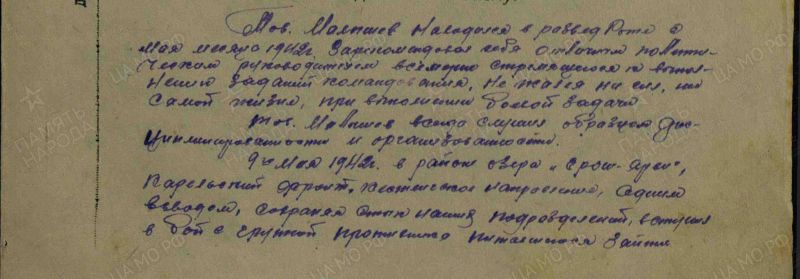 Тов. Малышев находился в развед роте с
мая месяца 1942г. Зарекомендовал себя отличным полити-
ческим руководителем всемерно стремящегося к выпол-
нению заданий командования, не жалея ни сил, ни
самой жизни, при выполнении боевой задачи
тов. Малышев всегда служил образцом дис-
циплинированности и организованности.
9го мая 1942г. в районе озера „Ерош-Ярви",
Карельский фронт, кестеньгское направление, одним
взводом, сохраняя стык наших подразделений, вступил
в бой с группой противника пытавшегося зайти